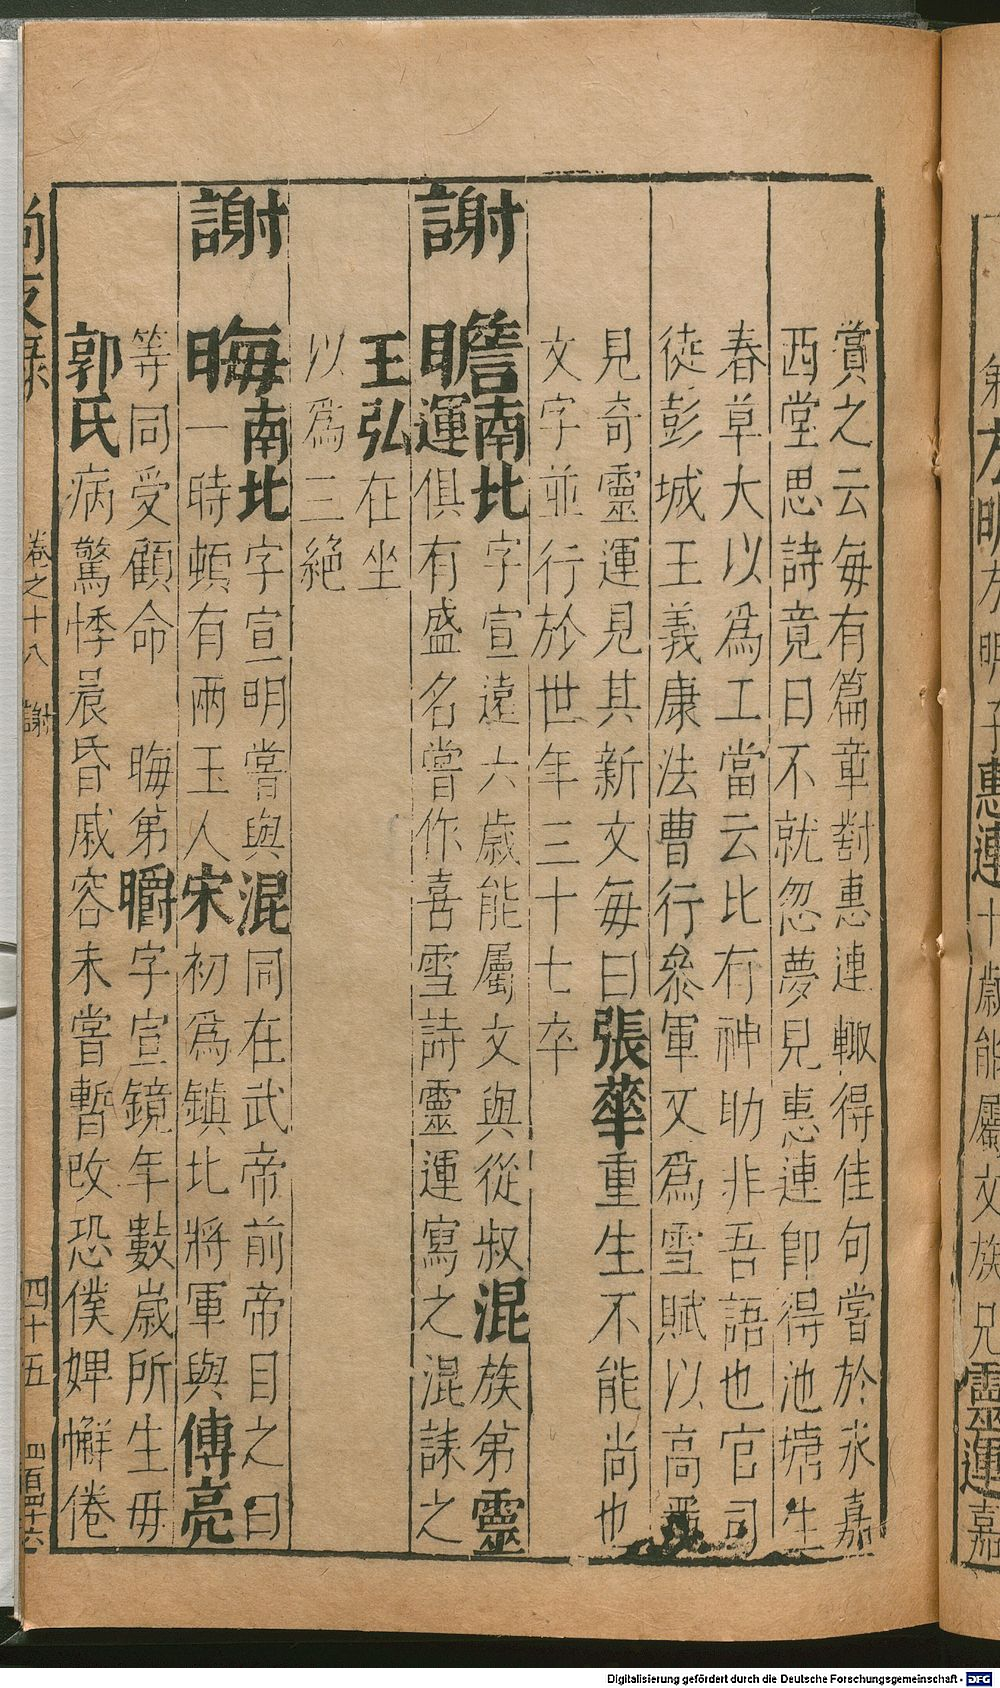 賞之云每有篇章對惠連輙得佳句嘗於永嘉
西堂思詩竟日不就忽夢見惠連即得池塘生
春草大以為工當云此有神助非吾語也官司
徒彭城王義康法曹行叅軍又爲雪賦以高
見奇靈運見其新文每曰張華重生不能尚也
文字並行於世年三十七卒
謝瞻南北字宣遠六歲能屬文與從叔混族第靈
瞻運俱有盛名嘗作喜雪詩靈運寫之混詠之
王弘在坐
以爲三絕
謝晦南北字宣明嘗與混同在武帝前帝目之曰
晦一時頓有兩玉人宋初爲鎮北將軍與傅亮
等同受顧命 晦第㬭字宣鏡年數歲所生毋
郭氏病驚悸晨昏戚容未嘗暫改恐僕婢懈倦
尚友錄 卷之十八 謝 四十五
十歲能屬文族兄靈運嘉
Digitalisierung gefördert durch die Deutsche Forschungsgemeinschaft - DFG